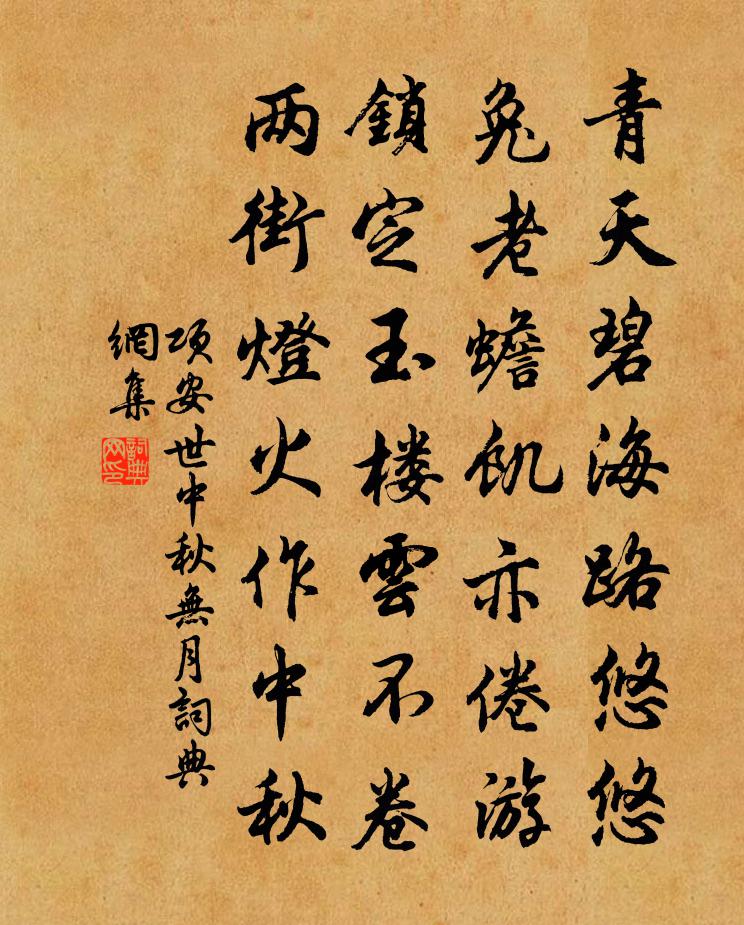 青天碧海路悠悠
兔老蟾飢亦倦游
鎖定玉楼雲不卷
两街燈火作中秋
項安世中秋無月詞典
網集
詞典网印